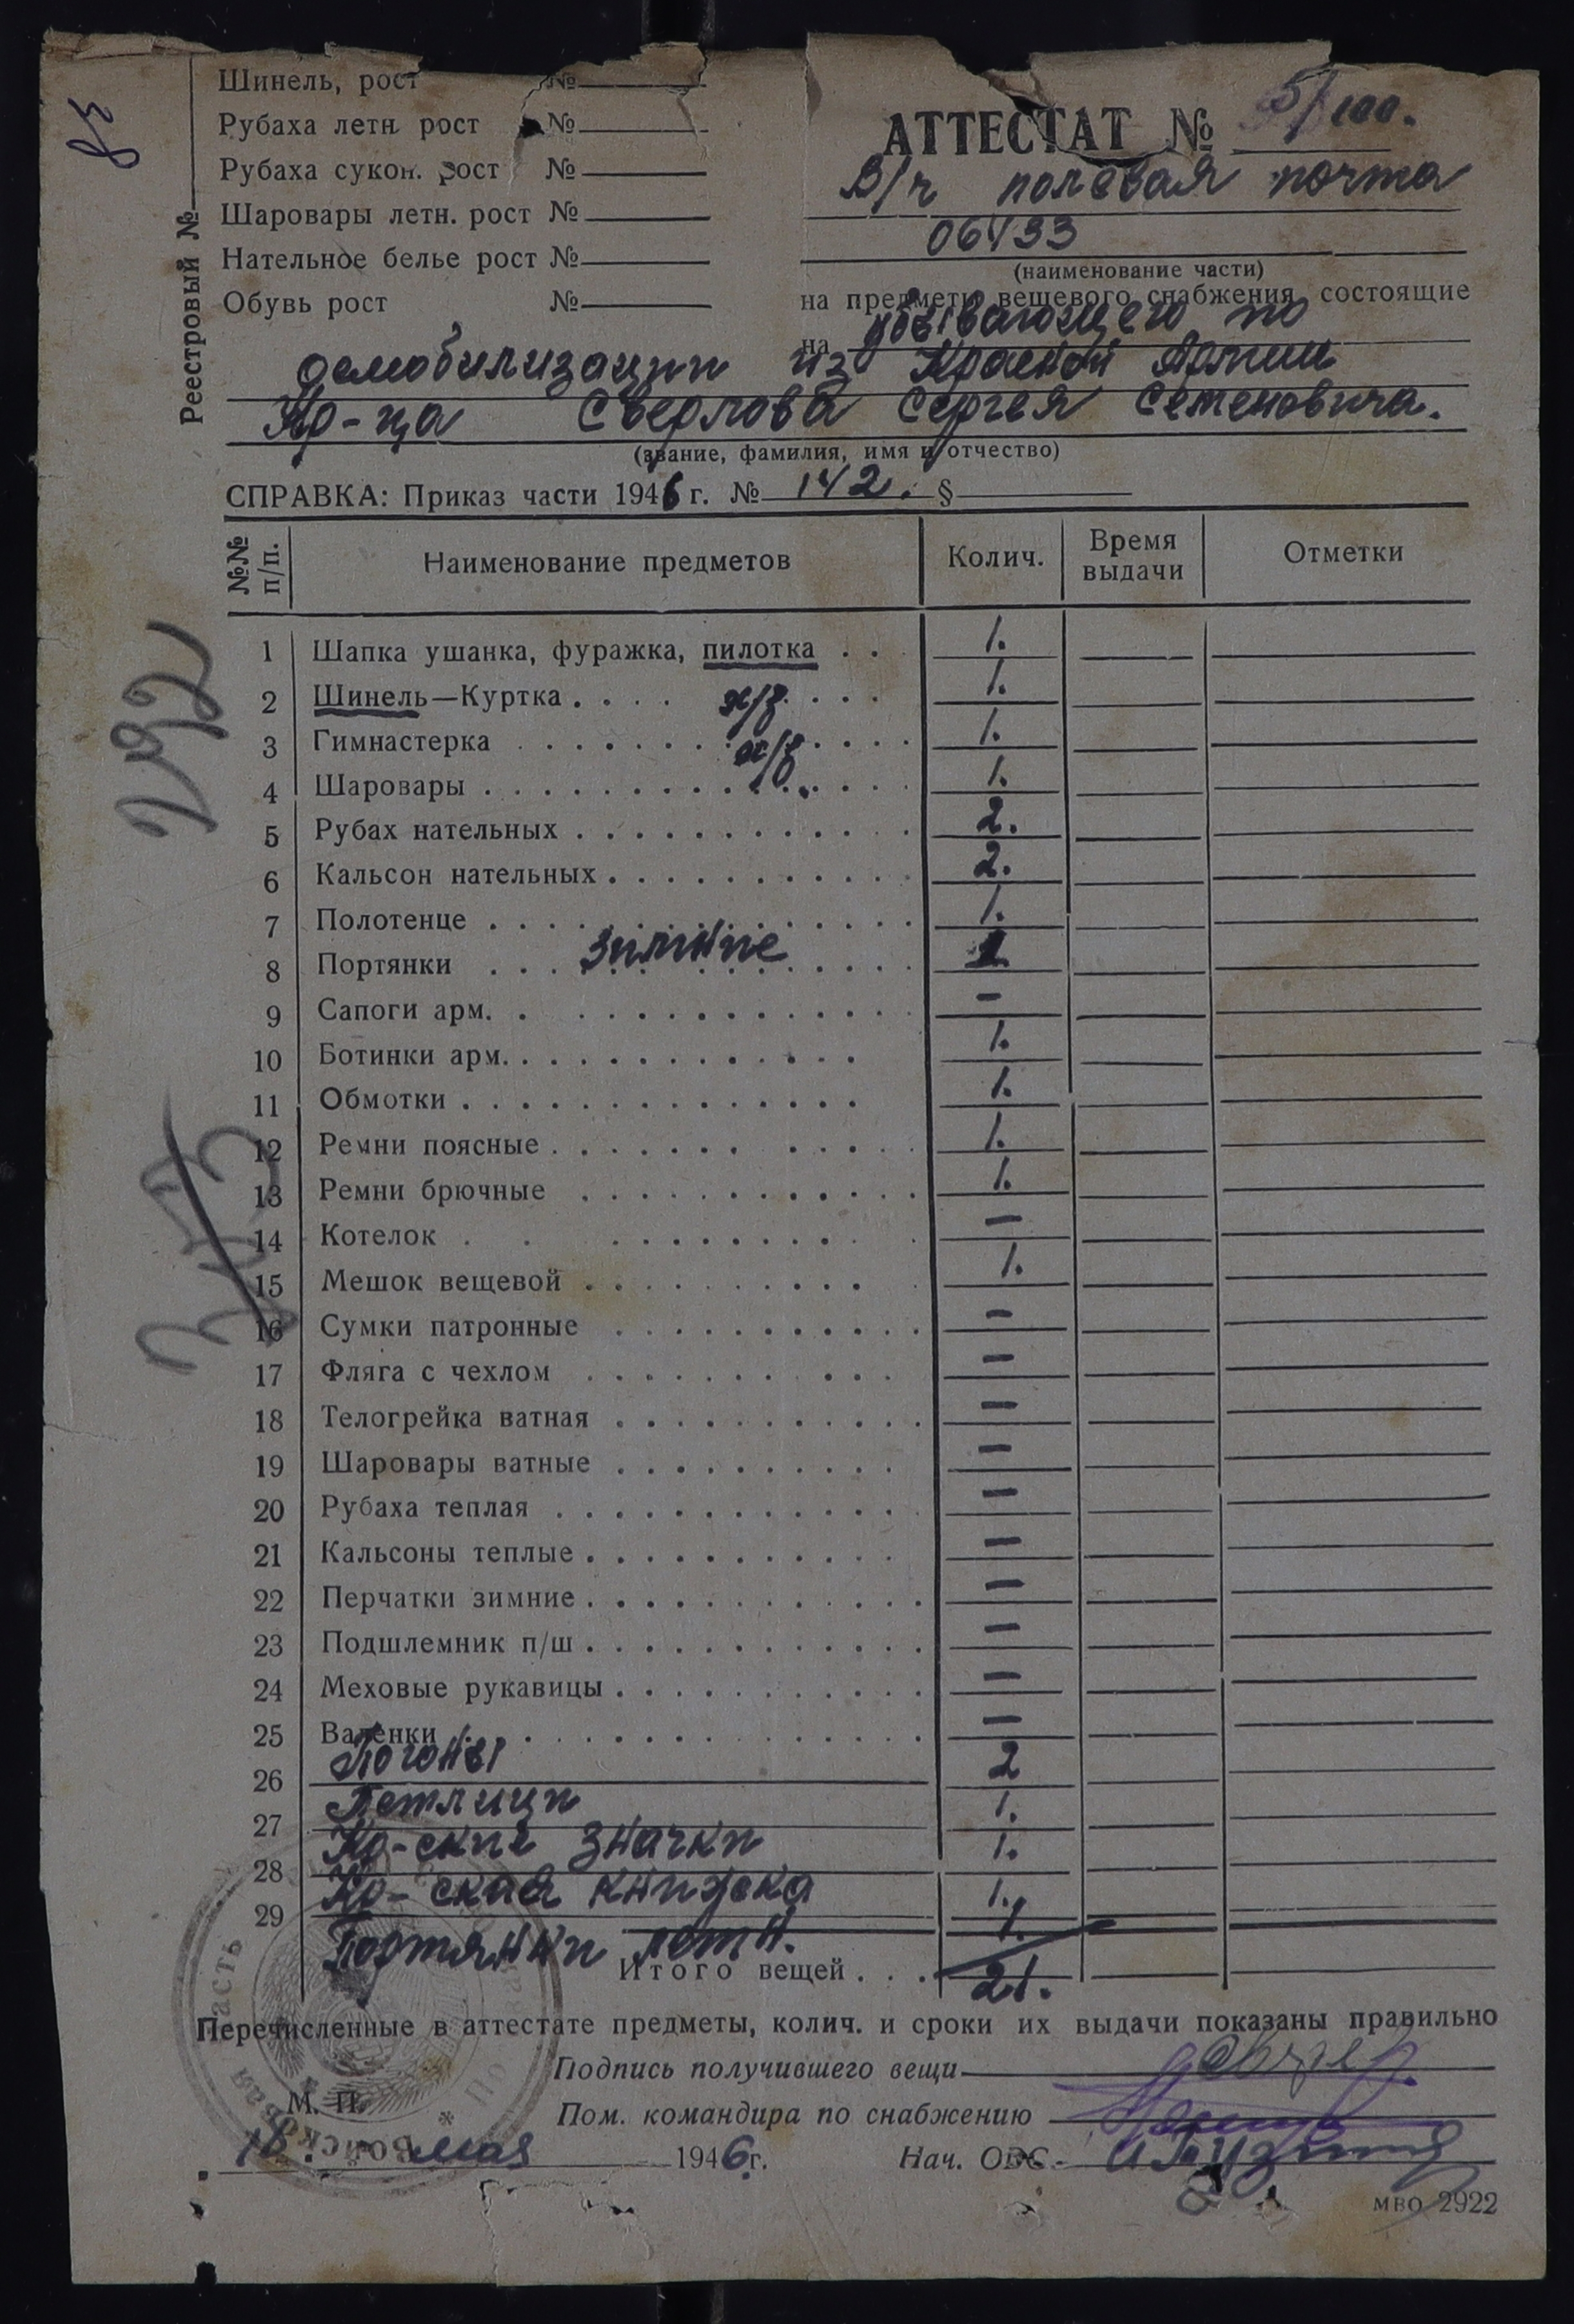 Шинель, рост №
Рубаха летн. рост №
Рубаха сукон. рост №
Шаровары летн. рост №
Нательное белье рост №
Обувь рост №
Реестровый №
АТТЕСТАТ № 5/100.
В/ч полевая почта
06433
(наименование части)
на предметы вещевого снабжения, состоящие
на убывающего по
демобилизации из Красной Армии
Кр-ца Сверлова Сергея Семеновича.
(звание, фамилия, имя и отчество)
СПРАВКА: Приказ части 1946 г. № 142. §
№№ п/п. Наименование предметов Колич. Время выдачи Отметки
1 Шапка ушанка, фуражка, пилотка . . 1.
2 Шинель—Куртка . . . . 1.
3 Гимнастерка х/б 1.
4 Шаровары х/б 1.
5 Рубах нательных 2.
6 Кальсон нательных 2.
7 Полотенце 1.
8 Портянки зимние 1
9 Сапоги арм. –
10 Ботинки арм. 1.
11 Обмотки 1.
12 Ремни поясные 1.
13 Ремни брючные 1.
14 Котелок –
15 Мешок вещевой 1.
16 Сумки патронные –
17 Фляга с чехлом –
18 Телогрейка ватная –
19 Шаровары ватные –
20 Рубаха теплая –
21 Кальсоны теплые –
22 Перчатки зимние –
23 Подшлемник п/ш –
24 Меховые рукавицы –
25 Валенки –
26 Погоны 2
27 Петлици 1.
28 Кр-ские значки 1.
29 Кр-ская книжка 1.
Портянки летн. 1.
Итого вещей . . . 21.
292
Перечисленные в аттестате предметы, колич. и сроки их выдачи показаны правильно
Подпись получившего вещи
М. П. Пом. командира по снабжению
18. мая 1946 г. Нач. ОВС.
МВО 2922